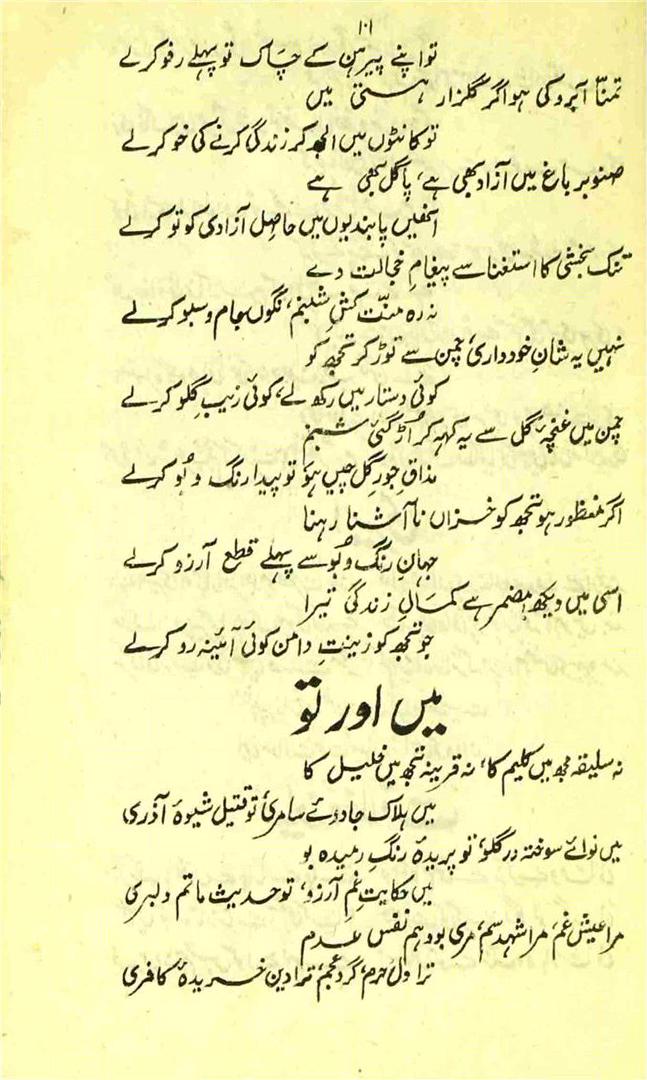 ۱۰۱
تو اپنے پیرہن کے چاک تو پہلے رفو کر لے
تمنّا آبرو کی ہو اگر گلزار ہستی میں
تو کانٹوں میں الجھ کر زندگی کرنے کی خو کر لے
صنوبر باغ میں آزاد بھی ہے، پا گِل بھی ہے
انھیں پابندیوں میں حاصل آزادی کو تو کر لے
تنک بخشی کا استغنا سے پیغامِ خجالت دے
نہ رہ منّت کشِ شبنم، نگوں جام و سبو کر لے
نہیں یہ شانِ خودداری، چمن سے توڑ کر تجھ کو
کوئی دستار میں رکھ لے، کوئی زیب گلو کر لے
چمن میں غنچۂ گل سے یہ کہہ کر اُڑ گئی شبنم
مذاقِ جورِ گلچیں ہو تو پیدا رنگ و بُو کر لے
اگر منظور ہو تجھ کو خزاں ناآشنا رہنا
جہانِ رنگ و بُو سے پہلے قطع آرزو کر لے
اسی میں دیکھ، مضمر ہے کمالِ زندگی تیرا
جو تجھ کو زینتِ دامن کوئی آئینہ رو کر لے
میں اور تو
نہ سلیقہ مجھ میں کلیم کا، نہ قرینہ تجھ میں خلیل کا
میں ہلاک جادوئے سامری، تو قتیل شیوۂ آذری
میں نوائے سوختہ در گلو، تو پریدہ رنگ، رمیدہ بو
میں حکایتِ غمِ آرزو، تو حدیث ماتم دلبری
مرا عیش غم، مرا شہد سم، مری بود ہم نفس عدم
ترا دل حرم، گرو عجم، ترا دین خریدۂ کافری